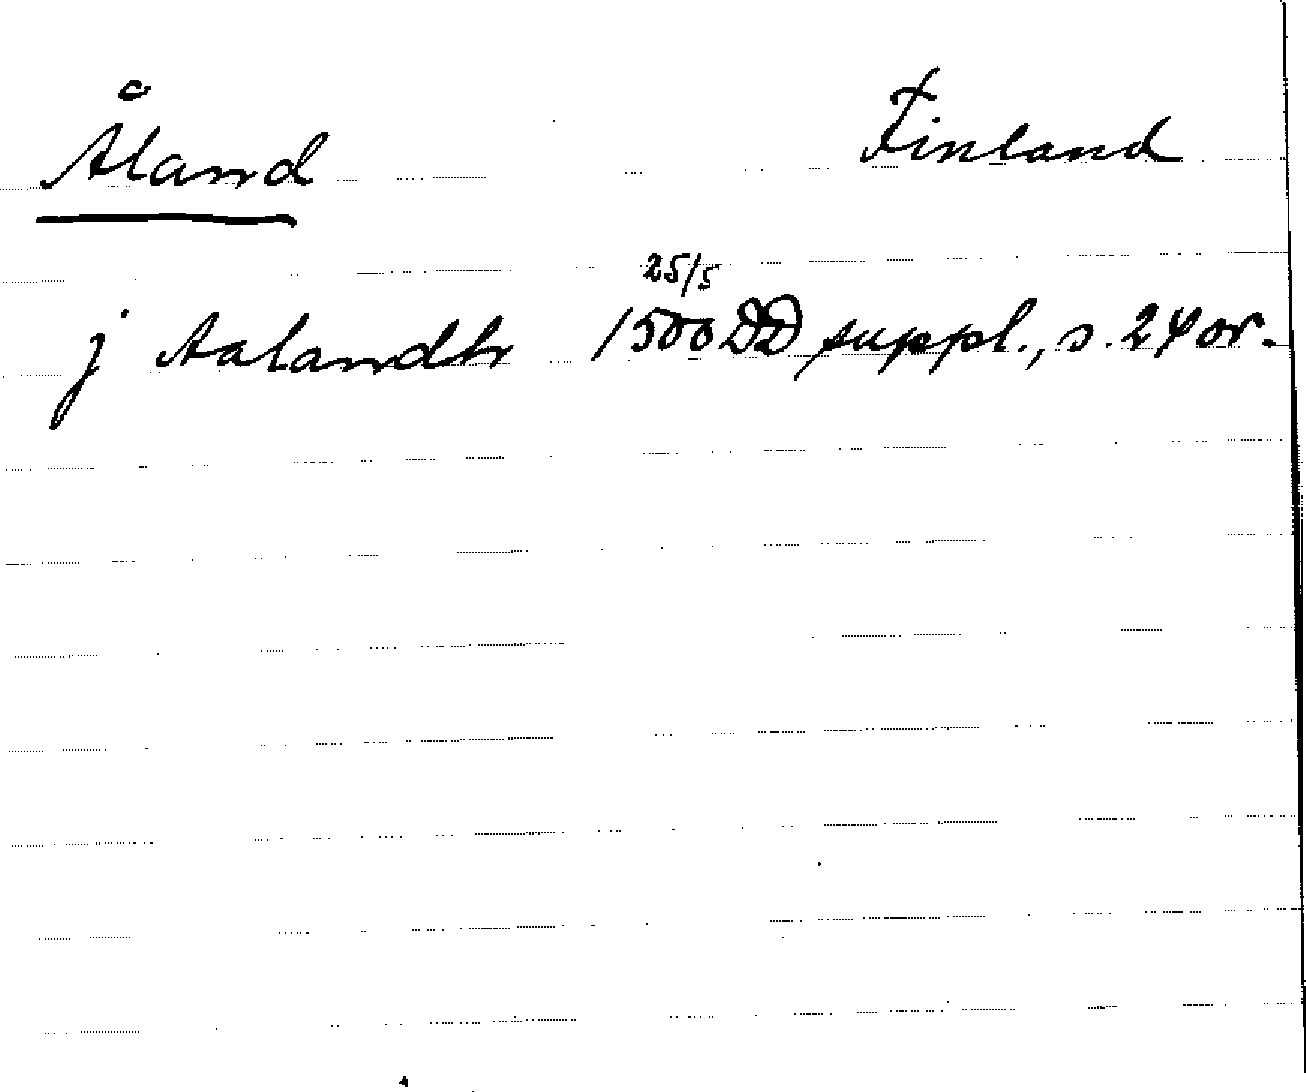 Åland Finland
25/5
j Aalandh 1500 DD suppl., s. 24 or.